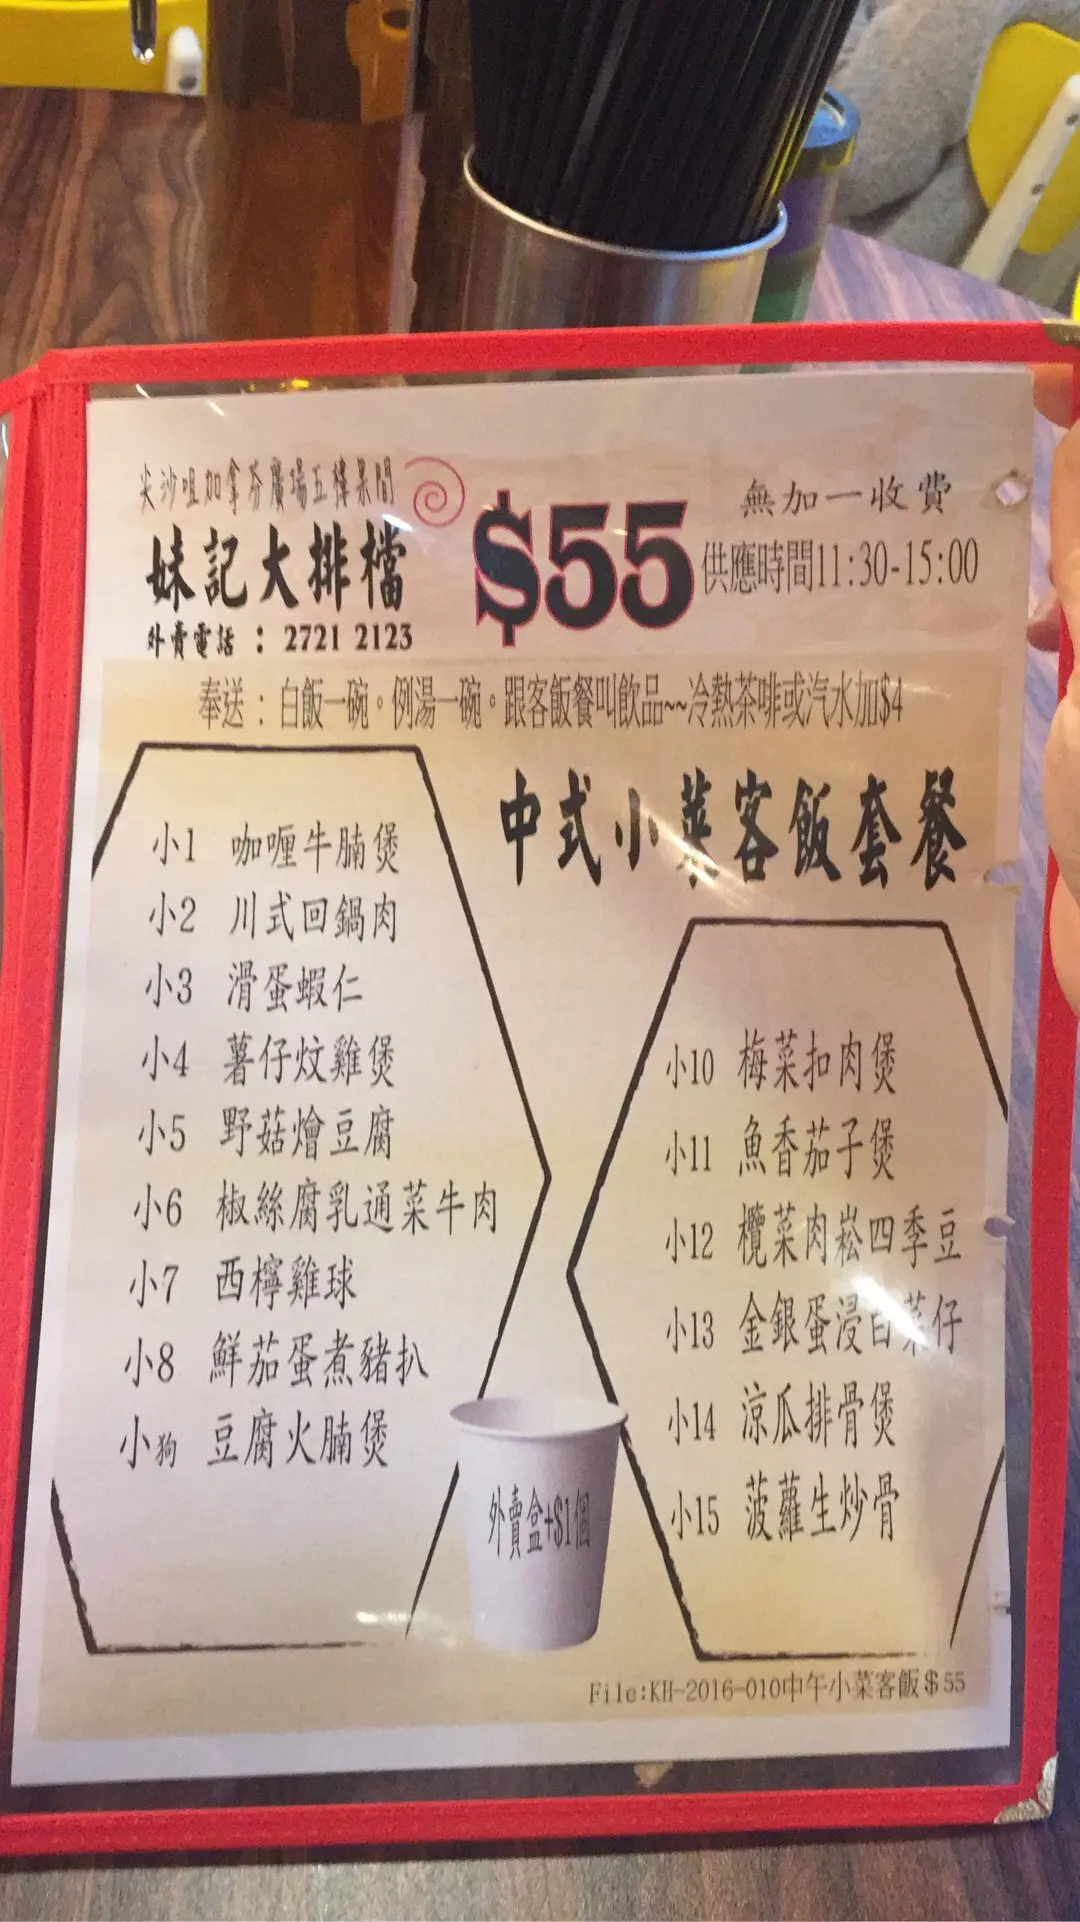 尖沙咀加拿芬廣場五樓果間
妹記大排檔
外賣電話 : 2721 2123
$55
無加一收費
供應時間11:30-15:00
奉送：白飯一碗。例湯一碗。跟客飯餐叫飲品~~冷熱茶啡或汽水加$4
中式小菜客飯套餐
小1 咖喱牛腩煲
小2 川式回鍋肉
小3 滑蛋蝦仁
小4 薯仔炆雞煲
小5 野菇燴豆腐
小6 椒絲腐乳通菜牛肉
小7 西檸雞球
小8 鮮茄蛋煮豬扒
小狗 豆腐火腩煲
小10 梅菜扣肉煲
小11 魚香茄子煲
小12 欖菜肉崧四季豆
小13 金銀蛋浸白菜仔
小14 涼瓜排骨煲
小15 菠蘿生炒骨
外賣盒+$1個
File:KH-2016-010中午小菜客飯$55